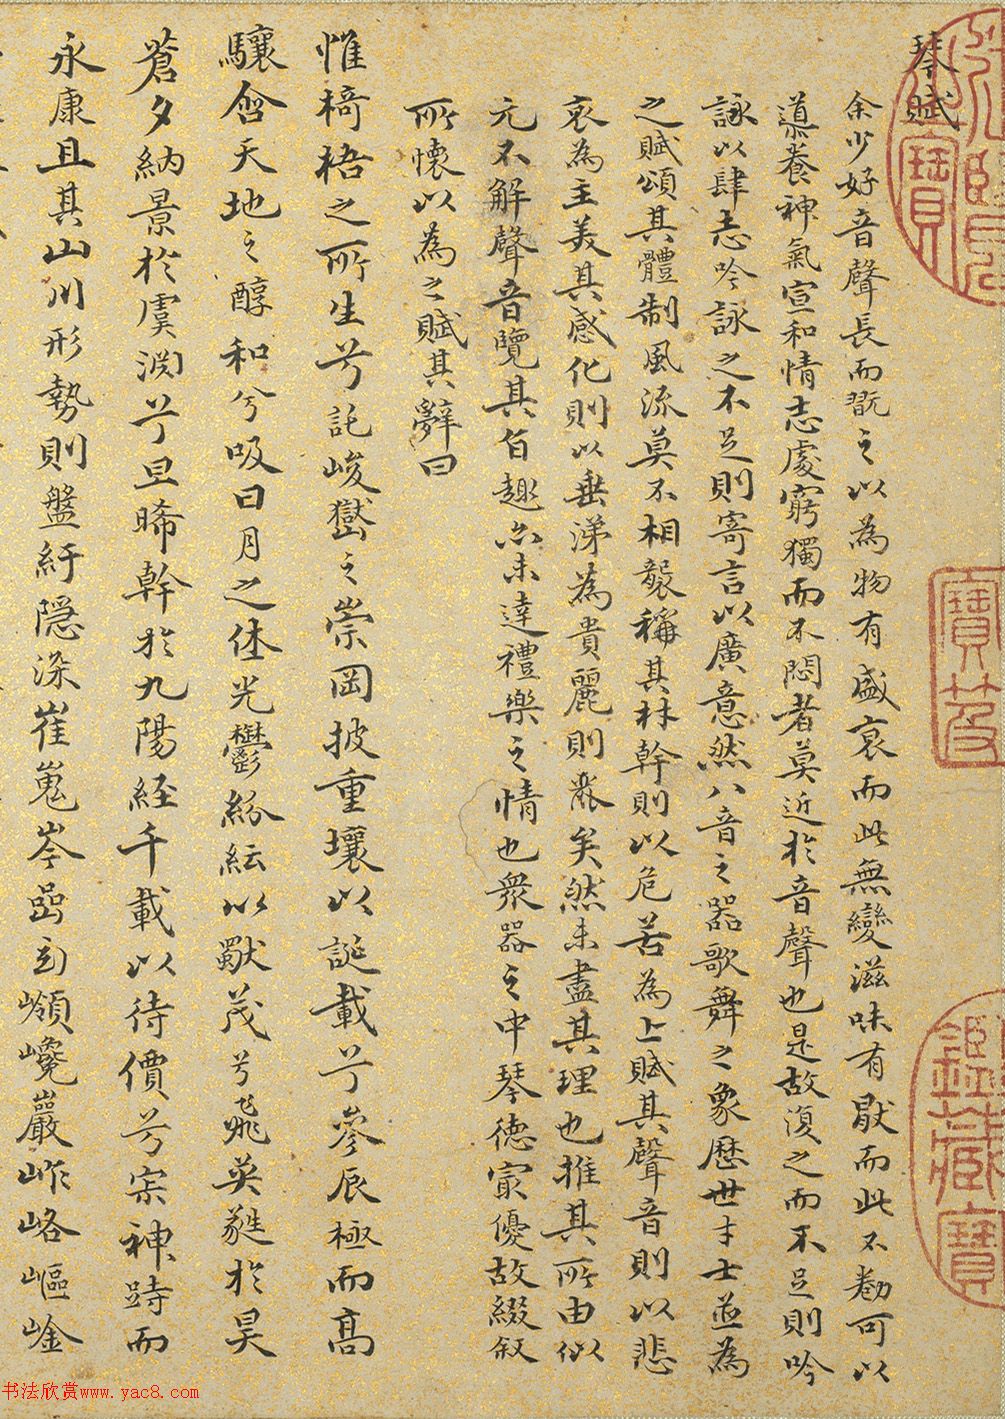 琴賦
余少好音聲長而翫之以為物有盛衰而此無變滋味有猒而此不勌可以
導養神氣宣和情志處窮獨而不悶者莫近於音聲也是故復之而不足則吟
詠以肆志吟詠之不足則寄言以廣意然八音之器歌舞之象歷世才士並為
之賦頌其體制風流莫不相襲稱其材幹則以危苦為上賦其聲音則以悲
哀為主美其感化則以垂涕為貴麗則麗矣然未盡其理也推其所由似
元不解聲音覽其旨趣亦未達禮樂之情也衆器之中琴德冣優故綴叙
所懷以為之賦其辭曰
惟椅梧之所生兮託峻嶽之崇岡披重壤以誕載兮參辰極而髙
驤含天地之醇和兮吸日月之休光鬱紛紜以獨茂兮飛英蕤於昊
蒼夕納景於虞淵兮旦晞幹於九陽經千載以待價兮寂神跱而
永康且其山川形勢則盤紆隱深崔嵬岑嵓玄嶺巉巖岞峉嶇崟
寶笈
鑑藏寶
书法欣赏www.yac8.com